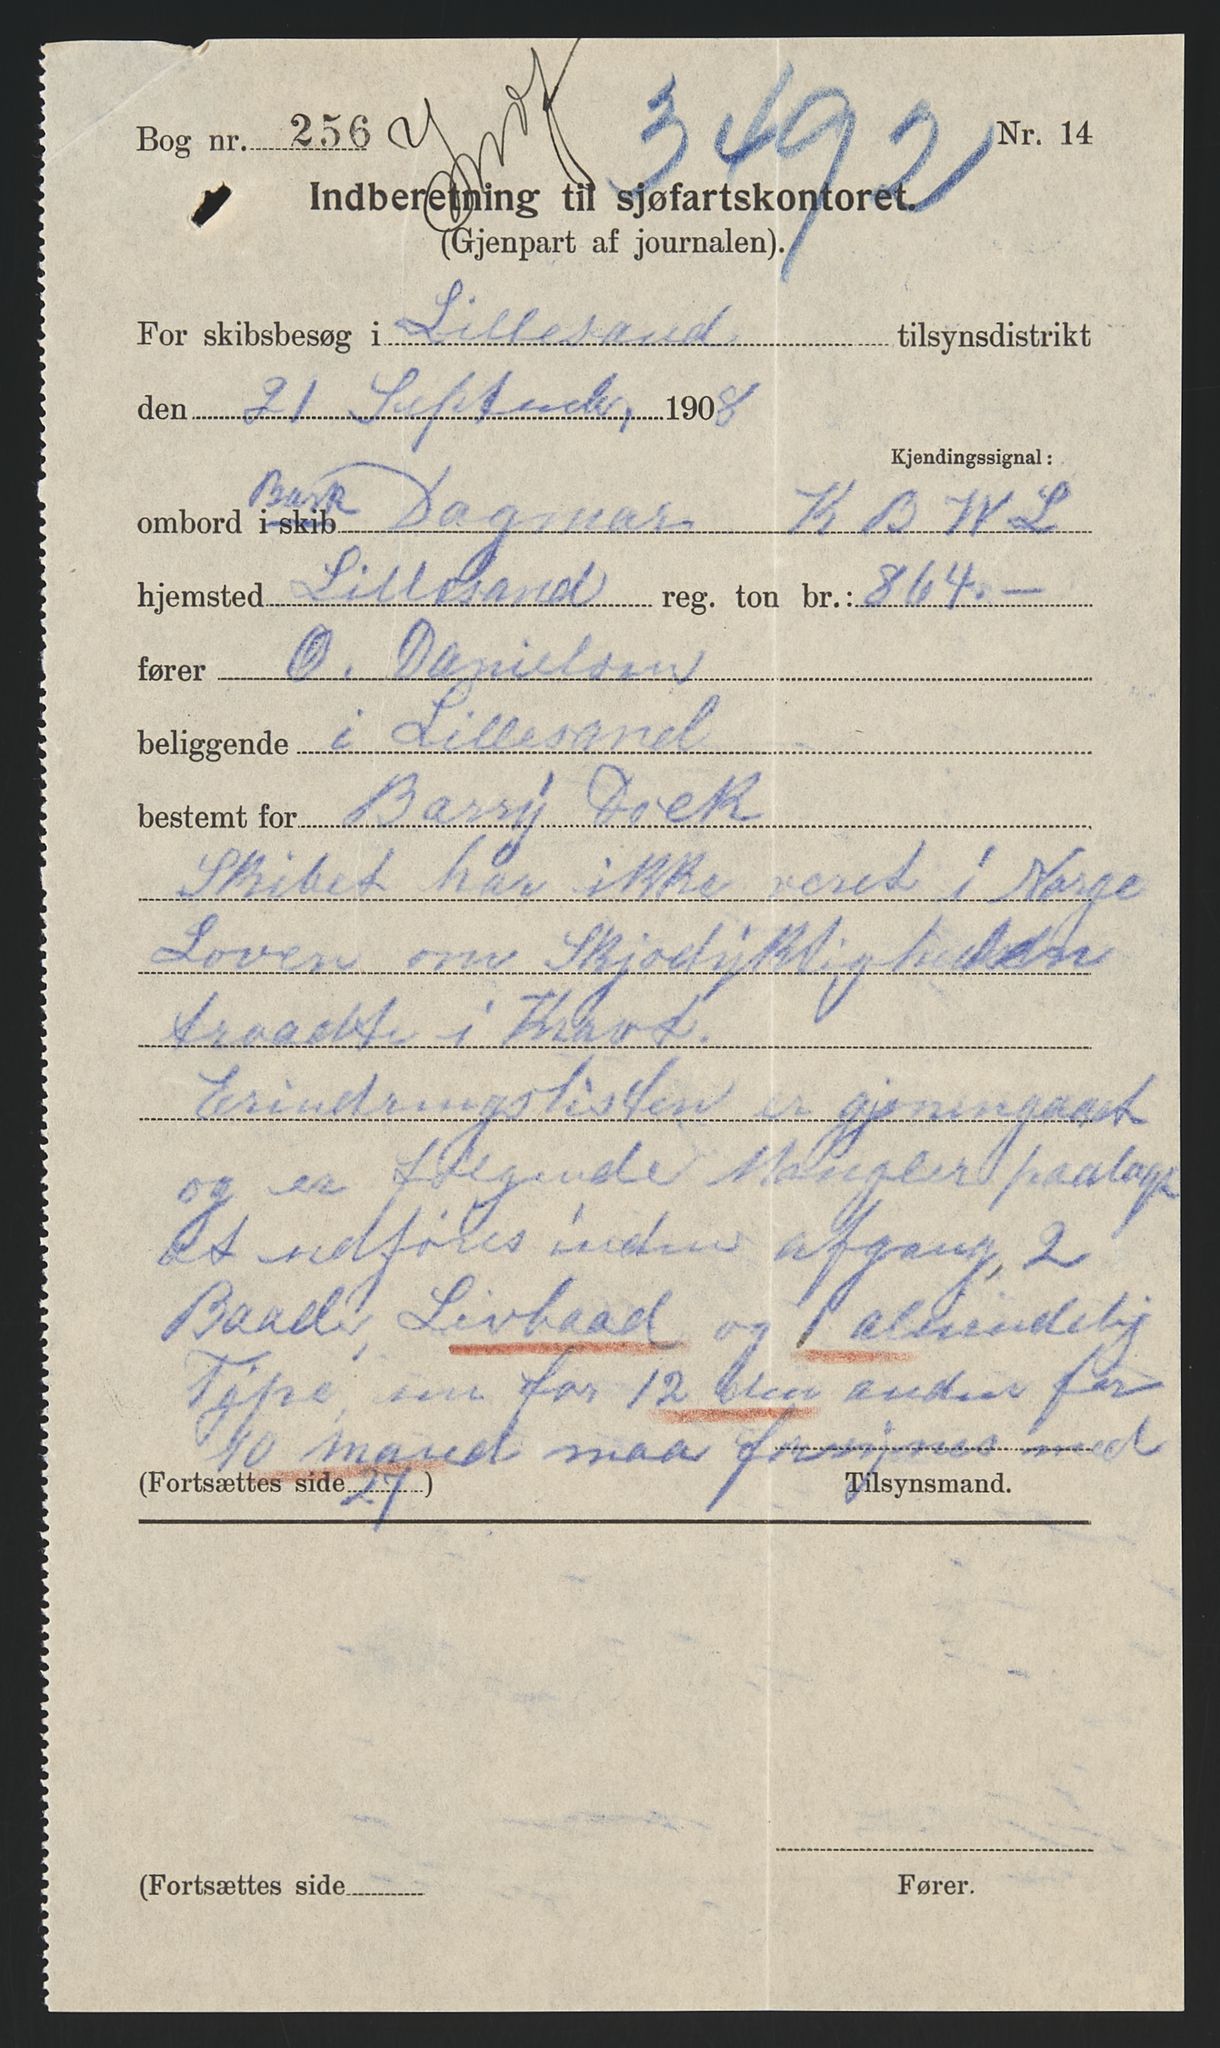 Bog nr. 256
3492
Nr. 14
Indberetning til sjøfartskontoret.
(Gjenpart af journalen).
For skibsbesøg i Lillesand tilsynsdistrikt
den 21 September, 1908
Kjendingssignal:
Bark
ombord i skib Dagmar K B W L
hjemsted Lillesand reg. ton br.: 864.—
fører O. Danielsen
beliggende i Lillesand
bestemt for Barry Dock
Skibet har ikke veret i Norge
Loven om Skjødyktigheden
traadte i Kravt.
Erindringslisten er gjenengaaet
og er følgende Mangler paalagt
at udføres inden afgang, 2
Baade, Livbaad og 1 almindelig
Type, en for 12 den anden for
10 mand maa forsynes med
(Fortsættes side 27)
Tilsynsmand.
(Fortsættes side
Fører.